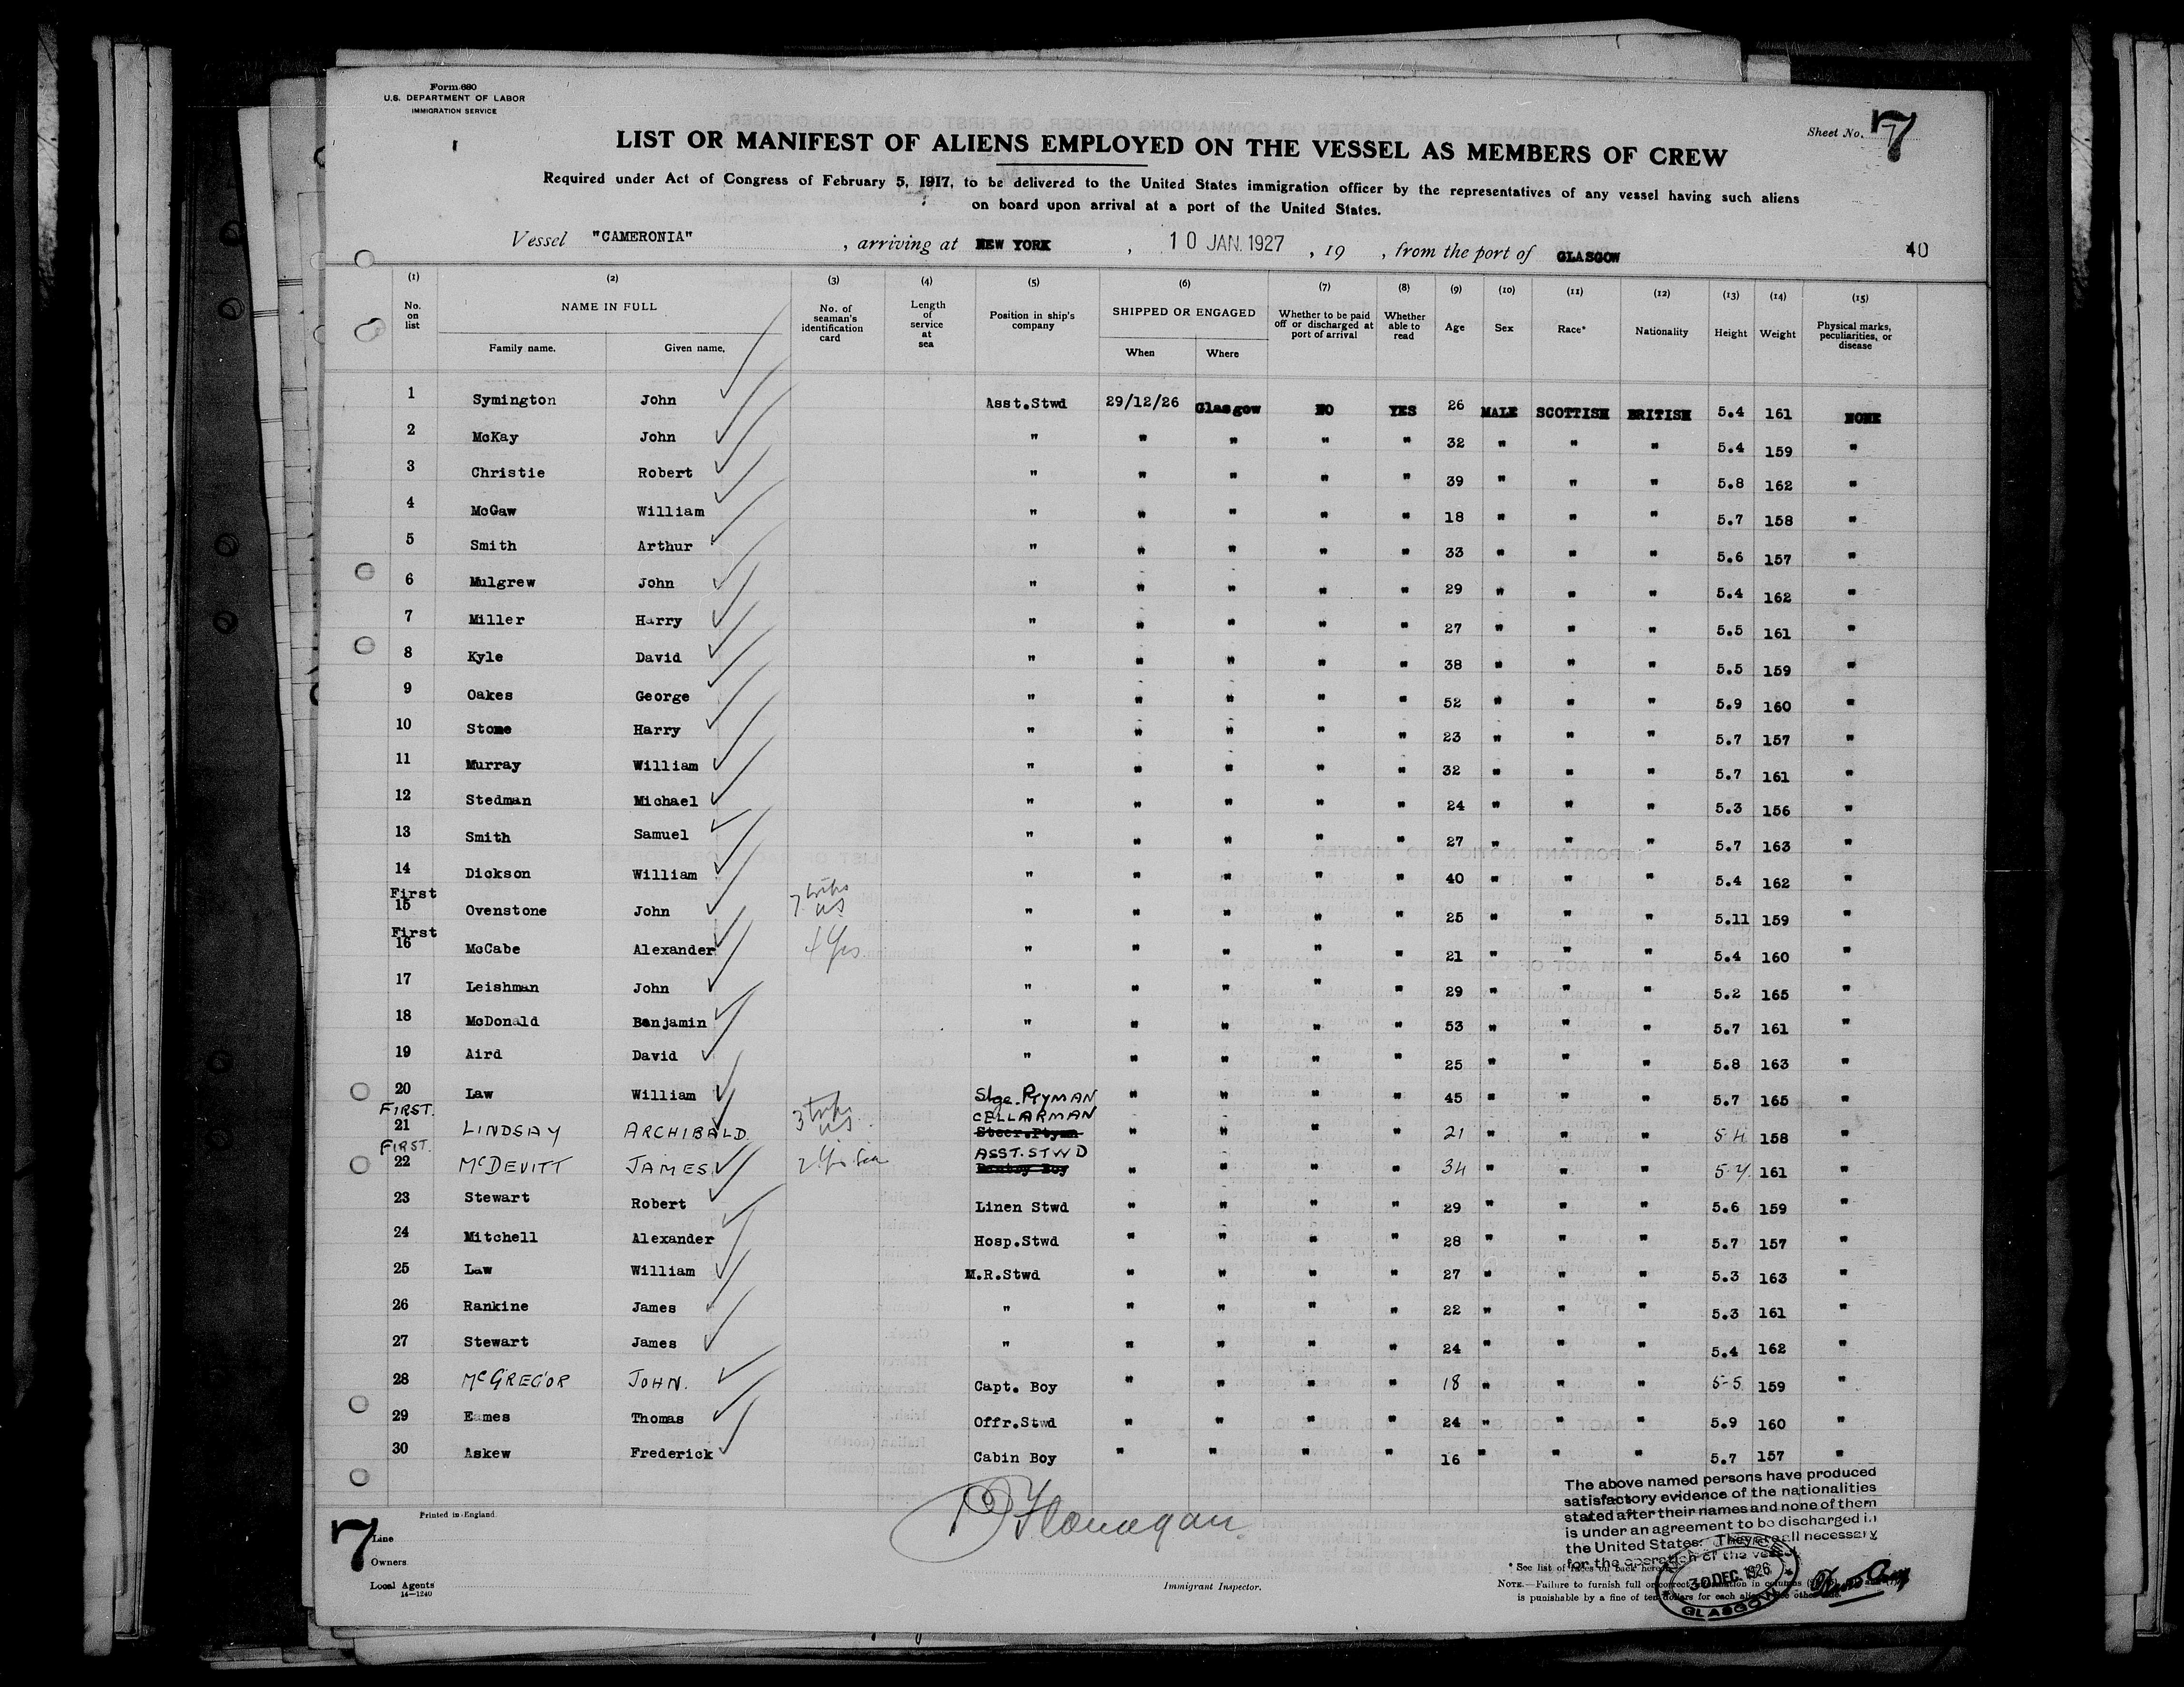 Form 680
U.S. DEPARTMENT OF LABOR
IMMIGRATION SERVICE
Sheet No. 7
LIST OR MANIFEST OF ALIENS EMPLOYED ON THE VESSEL AS MEMBERS OF CREW
Required under Act of Congress of February 5, 1917, to be delivered to the United States immigration officer by the representatives of any vessel having such aliens
on board upon arrival at a port of the United States.
Vessel "CAMERONIA" , arriving at NEW YORK , 10 JAN. 1927 , 19 , from the port of GLASGOW 40
(1) (2) (3) (4) (5) (6) (7) (8) (9) (10) (11) (12) (13) (14) (15)
No. on list NAME IN FULL Family name. Given name. No. of seaman's identification card Length of service at sea Position in ship's company SHIPPED OR ENGAGED When Where Whether to be paid off or discharged at port of arrival Whether able to read Age Sex Race* Nationality Height Weight Physical marks, peculiarities, or disease
1 Symington John Asst.Stwd 29/12/26 Glasgow NO YES 26 MALE SCOTTISH BRITISH 5.4 161 NONE
2 McKay John " " " " " 32 " " " 5.4 159 "
3 Christie Robert " " " " " 39 " " " 5.8 162 "
4 McGaw William " " " " " 18 " " " 5.7 158 "
5 Smith Arthur " " " " " 33 " " " 5.6 157 "
6 Mulgrew John " " " " " 29 " " " 5.4 162 "
7 Miller Harry " " " " " 27 " " " 5.5 161 "
8 Kyle David " " " " " 38 " " " 5.5 159 "
9 Oakes George " " " " " 52 " " " 5.9 160 "
10 Stone Harry " " " " " 23 " " " 5.7 157 "
11 Murray William " " " " " 32 " " " 5.7 161 "
12 Stedman Michael " " " " " 24 " " " 5.3 156 "
13 Smith Samuel " " " " " 27 " " " 5.7 163 "
14 Dickson William " " " " " 40 " " " 5.4 162 "
First
15 Ovenstone John 7 trips US " " " " " 25 " " " 5.11 159 "
First
16 McCabe Alexander 4 Yrs " " " " " 21 " " " 5.4 160 "
17 Leishman John " " " " " 29 " " " 5.2 165 "
18 McDonald Benjamin " " " " " 53 " " " 5.7 161 "
19 Aird David " " " " " 25 " " " 5.8 163 "
20 Law William Stge. PTYMAN " " " " 45 " " " 5.7 165 "
FIRST. CELLARMAN
21 LINDSAY ARCHIBALD 3 trips US Steer.Ptyman " " " " 21 " " " 5.4 158 "
FIRST. ASST. STWD
22 McDEVITT JAMES 2 Yrs Sea Pantry Boy " " " " 34 " " " 5.7 161 "
23 Stewart Robert Linen Stwd " " " " 29 " " " 5.6 159 "
24 Mitchell Alexander Hosp.Stwd " " " " 28 " " " 5.7 157 "
25 Law William M.R.Stwd " " " " 27 " " " 5.3 163 "
26 Rankine James " " " " " 22 " " " 5.3 161 "
27 Stewart James " " " " " 24 " " " 5.4 162 "
28 McGREGOR JOHN. Capt. Boy " " " " 18 " " " 5-5 159 "
29 Eames Thomas Offr.Stwd " " " " 24 " " " 5.9 160 "
30 Askew Frederick Cabin Boy " " " " 16 " " " 5.7 157 "
The above named persons have produced
satisfactory evidence of the nationalities
stated after their names and none of them
is under an agreement to be discharged in
the United States. They are all necessary
for the operation of the vessel.
Flanagan
Immigrant Inspector.
Printed in England.
7
Line
Owners
Local Agents
14—1240
* See list of races on back hereof.
NOTE.—Failure to furnish full or correct information in columns
is punishable by a fine of ten dollars for each alien. See other side.
30 DEC. 1926
GLASGOW